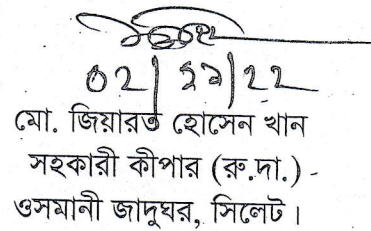 মো. জিয়ারত হোসেন খান
সহকারী কীপার (রু.দা.)
ওসমানী জাদুঘর, সিলেট।